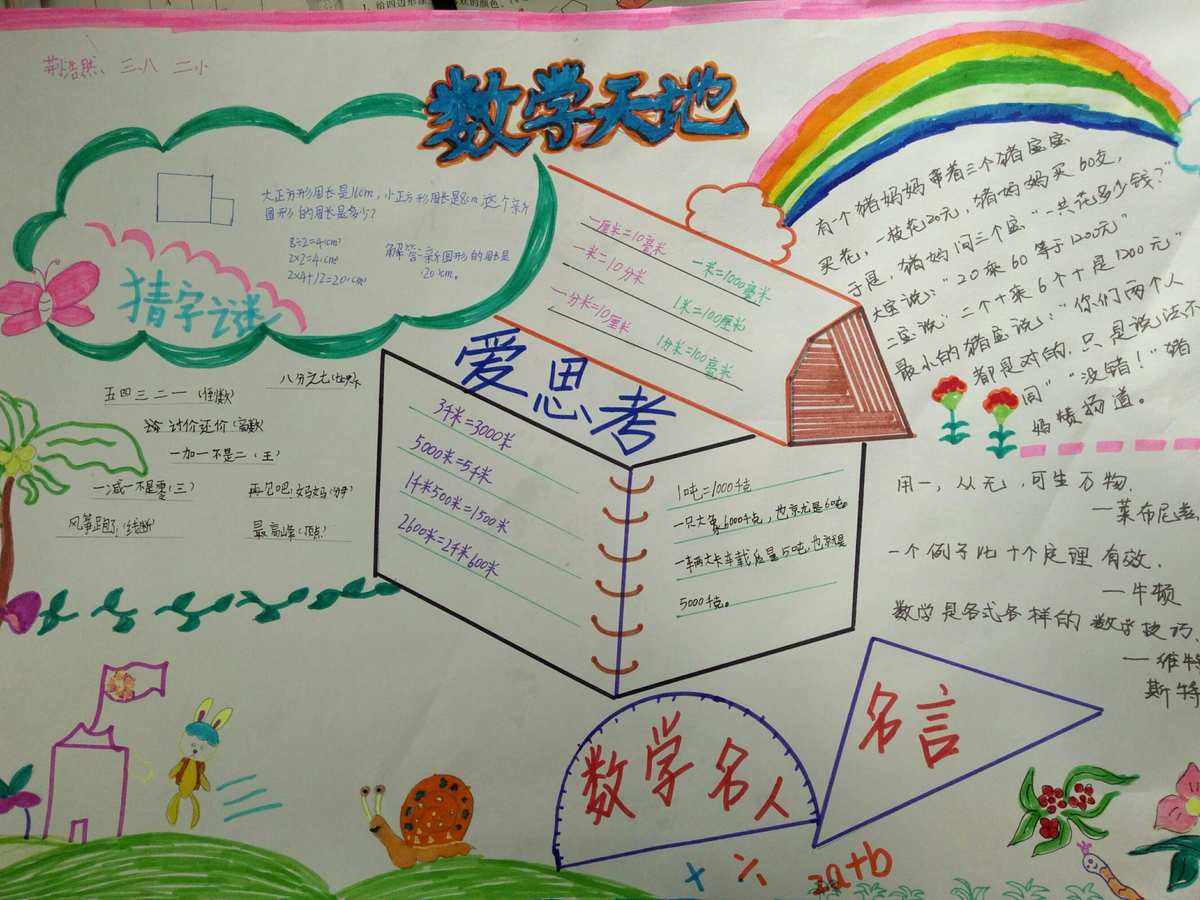 1. 给四边形
的颜色。
荆浩然、三八 二小
数学天地
大正方形周长是16cm，小正方形周长是8cm 这个新
图形的周长是多少？
8÷2=4(cm)
2×2=4(cm)
2×4+12=20(cm)
解答：新图形的周长是
20(cm)。
猜字谜
五四三二一（倒数）
八分之七
讨价还价（商数）
一加一不是二（王）
一减一不是零（三）
再见吧，妈妈（分母）
风筝跑了（线断）
最高峰（顶点）
一厘米=10毫米
一米=1000毫米
一米=10分米
1米=100厘米
一分米=10厘米
1分米=100毫米
爱思考
3千米=3000米
5000米=5千米
1千米500米=1500米
2600米=2千米600米
1吨=1000千克
一只大象6000千克，也就是6吨。
一辆大卡车载后量50吨，也就是
5000千克。
有一个猪妈妈带着三个猪宝宝
买花，一枝花20元，猪妈妈买60支，
于是，猪妈问三个宝“一共花多少钱？”
大宝说：“20乘60等于1200元”
二宝说：“二个十乘6个十是1200元”
最小的猪宝说：“你们两个人
都是对的，只是说法不
同”“没错！”猪
妈赞扬道。
用一，从无，可生万物。
一莱布尼兹
一个例子比十个定理有效.
一牛顿
数学是各式各样的数学技巧.
一维特
斯特
数学名人
名言
+ ÷
a+b